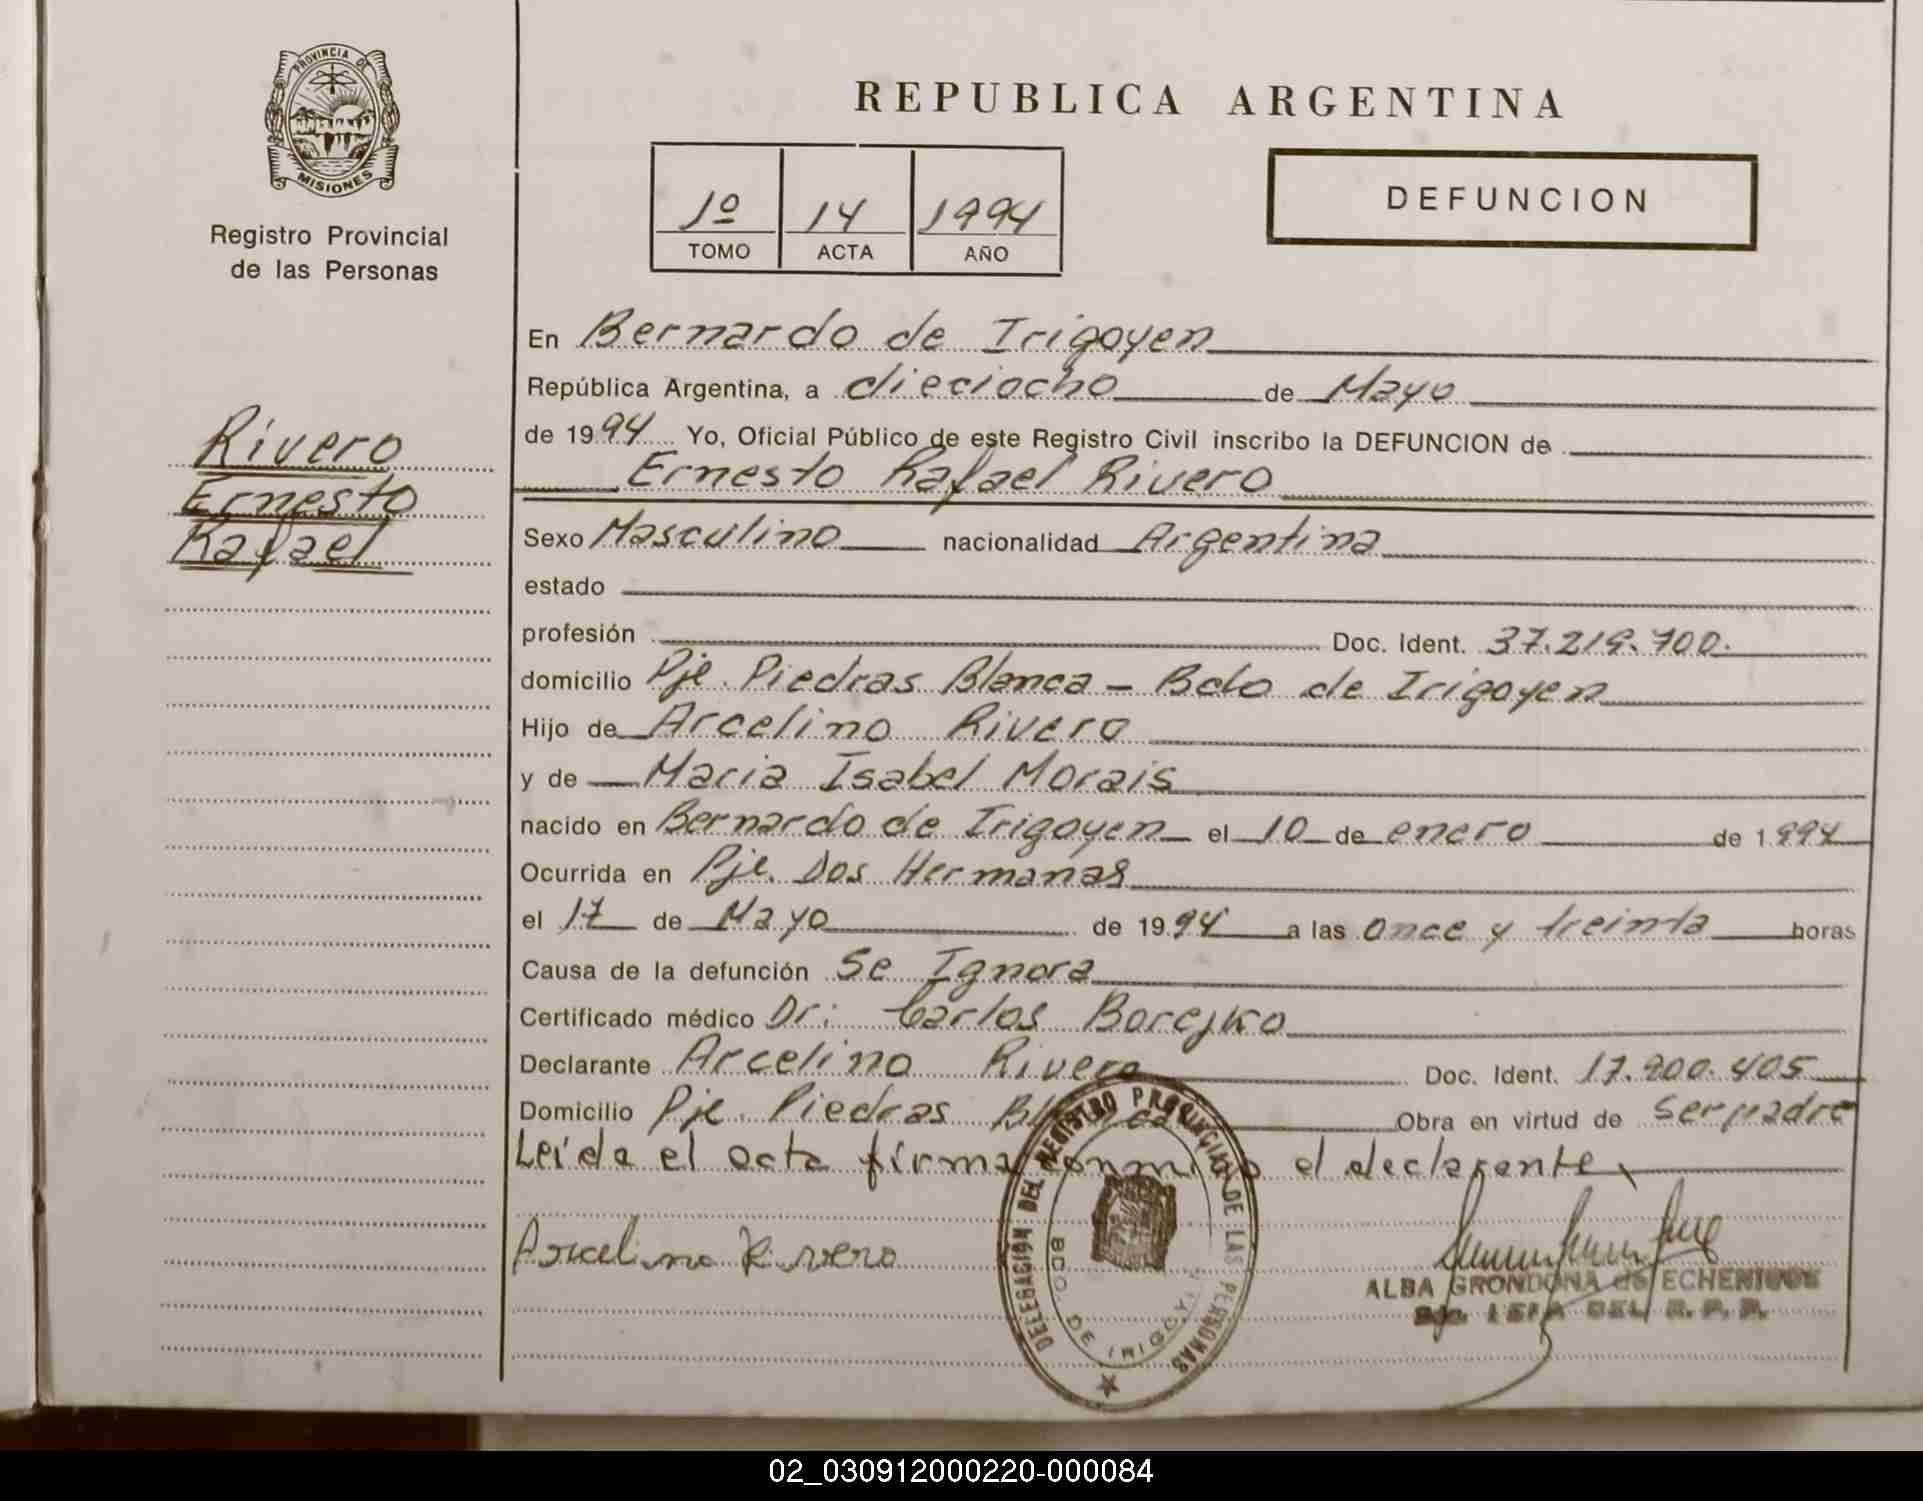 PROVINCIA DE
MISIONES
Registro Provincial
de las Personas
Rivero
Ernesto
Rafael
REPUBLICA ARGENTINA
1º 14 1994
TOMO ACTA AÑO
DEFUNCION
En Bernardo de Irigoyen
República Argentina, a dieciocho de Mayo
de 1994 Yo, Oficial Público de este Registro Civil inscribo la DEFUNCION de
Ernesto Rafael Rivero
Sexo Masculino nacionalidad Argentina
estado
profesión Doc. Ident. 37.219.700.
domicilio Pje. Piedras Blanca - Bdo de Irigoyen
Hijo de Arcelino Rivero
y de Maria Isabel Morais
nacido en Bernardo de Irigoyen el 10 de enero de 1994
Ocurrida en Pje. Dos Hermanas
el 17 de Mayo de 1994 a las once y treinta horas
Causa de la defunción Se Ignora
Certificado médico Dr: Carlos Borejko
Declarante Arcelino Rivero Doc. Ident. 17.900.405
Domicilio Pje. Piedras Blanca Obra en virtud de Ser padre
Leída el acta firma conmigo el declarante
Arcelino Rivero
DELEGACION DEL REGISTRO PROVINCIAL DE LAS PERSONAS
BDO. DE IRIGOYEN
ALBA GRONDONA de ECHENIQUE
DEL R. P. P.
02_030912000220-000084